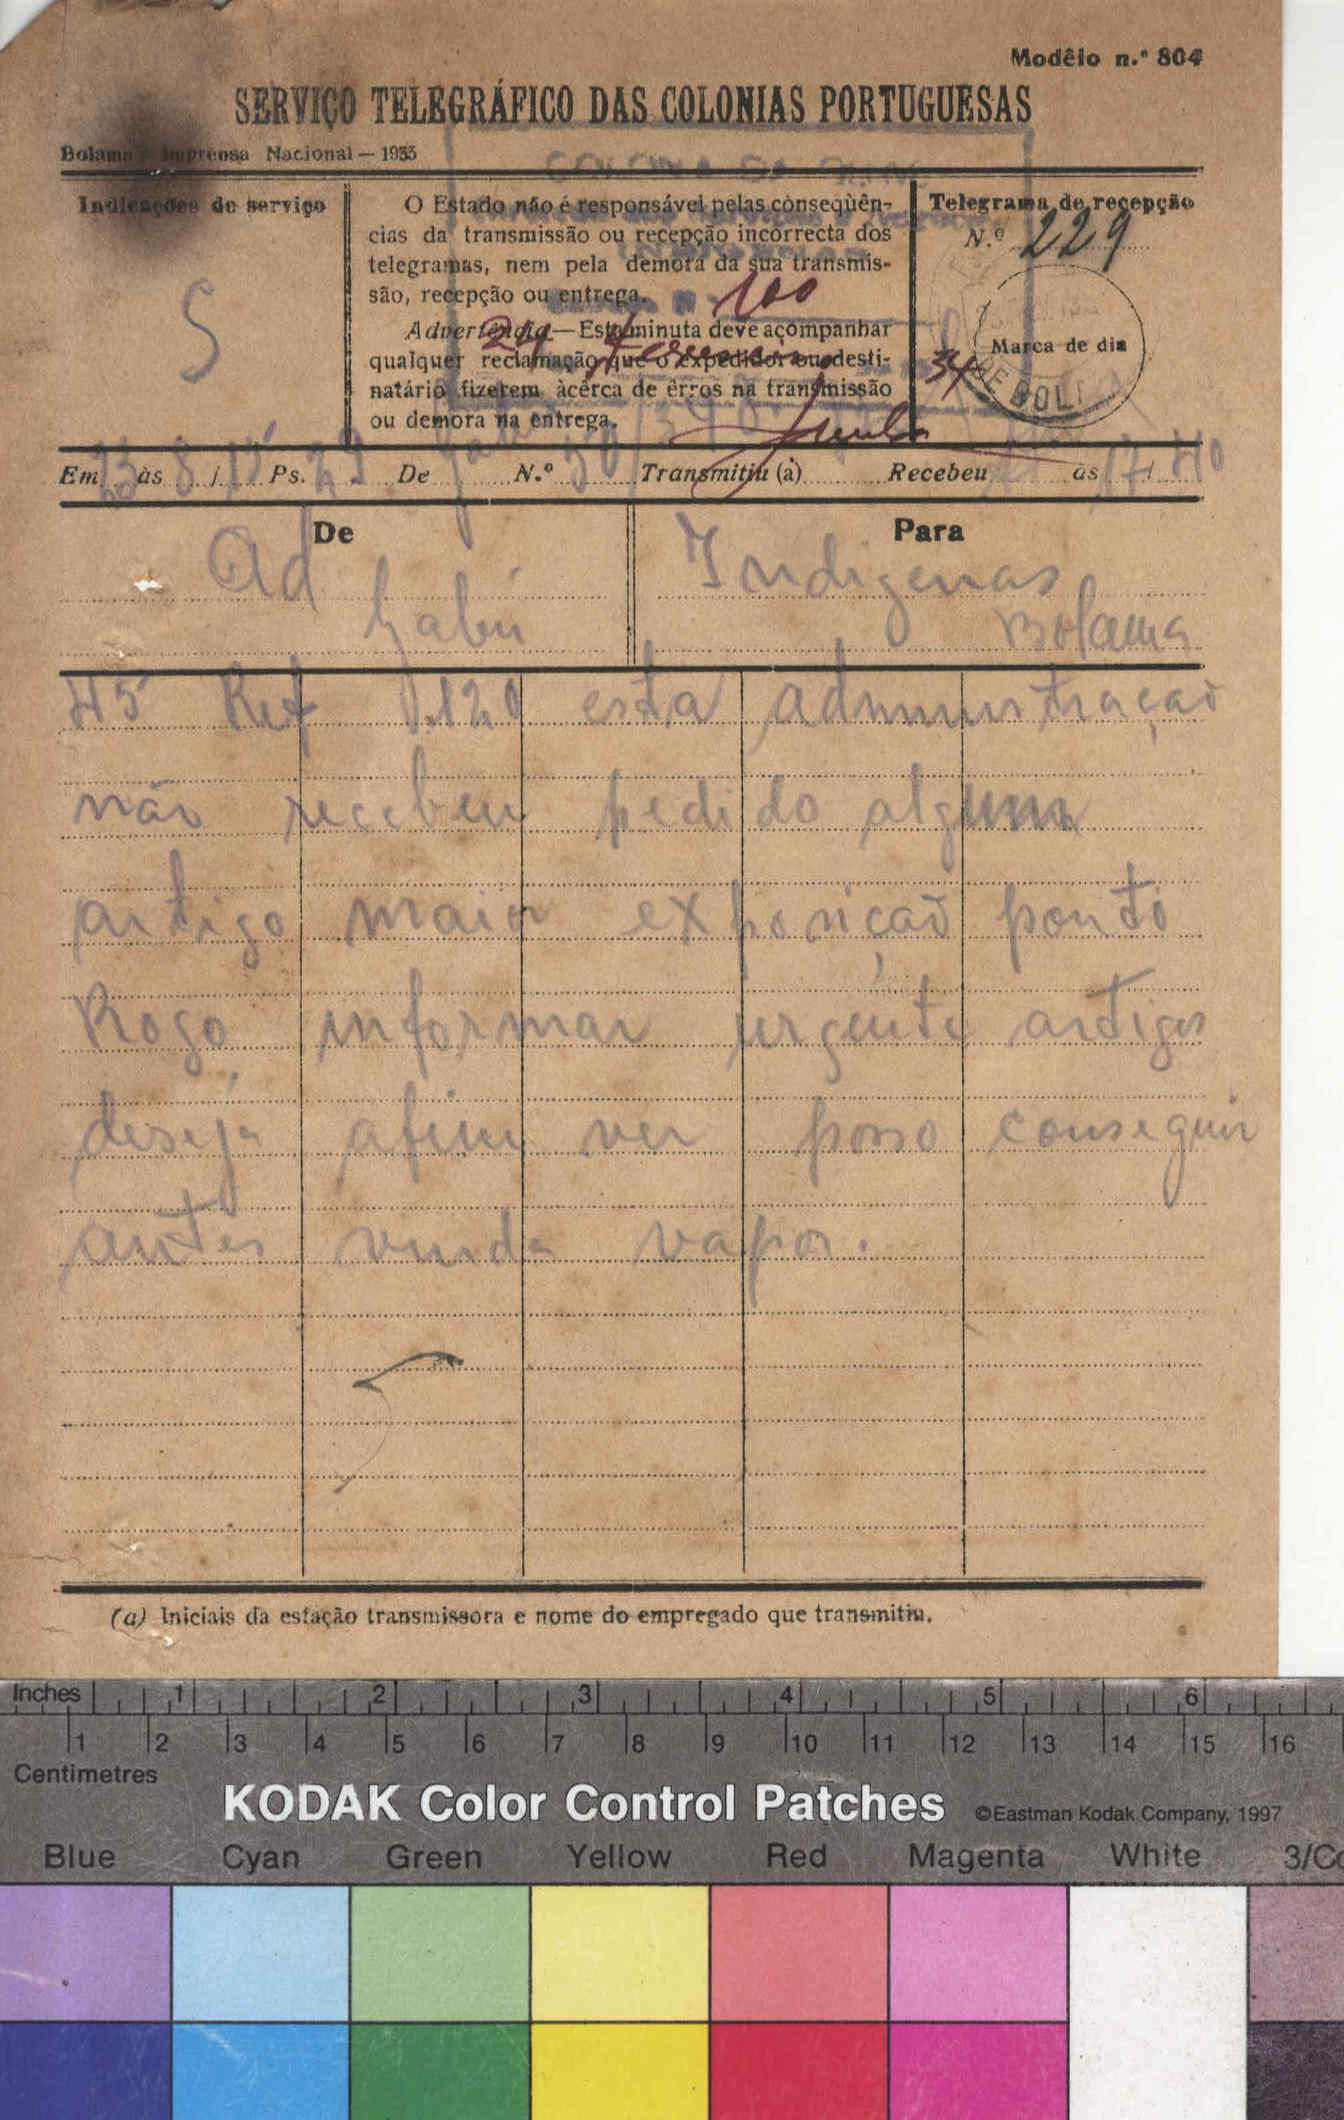 Modêlo n.º 804
SERVIÇO TELEGRÁFICO DAS COLONIAS PORTUGUESAS
Bolama - Imprensa Nacional — 1933
Indicações de serviço
S
O Estado não é responsável pelas conseqüên-
cias da transmissão ou recepção incorrecta dos
telegramas, nem pela demora da sua transmis-
são, recepção ou entrega.
Advertência — Esta minuta deve acompanhar
qualquer reclamação que o expedidor ou desti-
natário fizerem àcêrca de êrros na transmissão
ou demora na entrega.
100
34
Telegrama de recepção
N.º 229
Marca de dia
COLONIA DA
Em às Ps. De N.º Transmitiu (a) Recebeu às 17 40
De
Ad
Gabú
Para
Indigenas
Bolama
45 Ref 120 esta administração
não recebeu pedido algum
artigo maior exposição ponto
Rogo informar urgente artigos
deseja afim ver posso conseguir
antes vinda vapor.
(a) Iniciais da estação transmissora e nome do empregado que transmitiu.
Inches 1 2 3 4 5 6
1 2 3 4 5 6 7 8 9 10 11 12 13 14 15 16
Centimetres
KODAK Color Control Patches ©Eastman Kodak Company, 1997
Blue Cyan Green Yellow Red Magenta White 3/Co